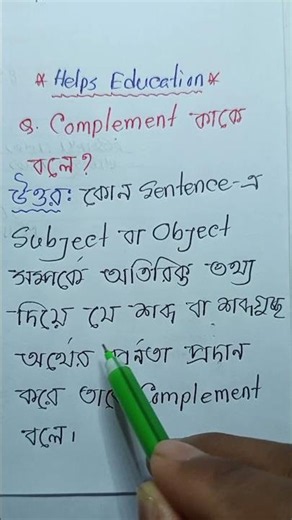 * Helps Education *
Q. Complement কাকে
বলে?
উত্তর: কোন Sentence-এ
Subject বা Object
সম্পর্কে অতিরিক্ত তথ্য
দিয়ে যে শব্দ বা শব্দগুচ্ছ
অর্থের পূর্নতা প্রদান
করে তাকে Complement
বলে।